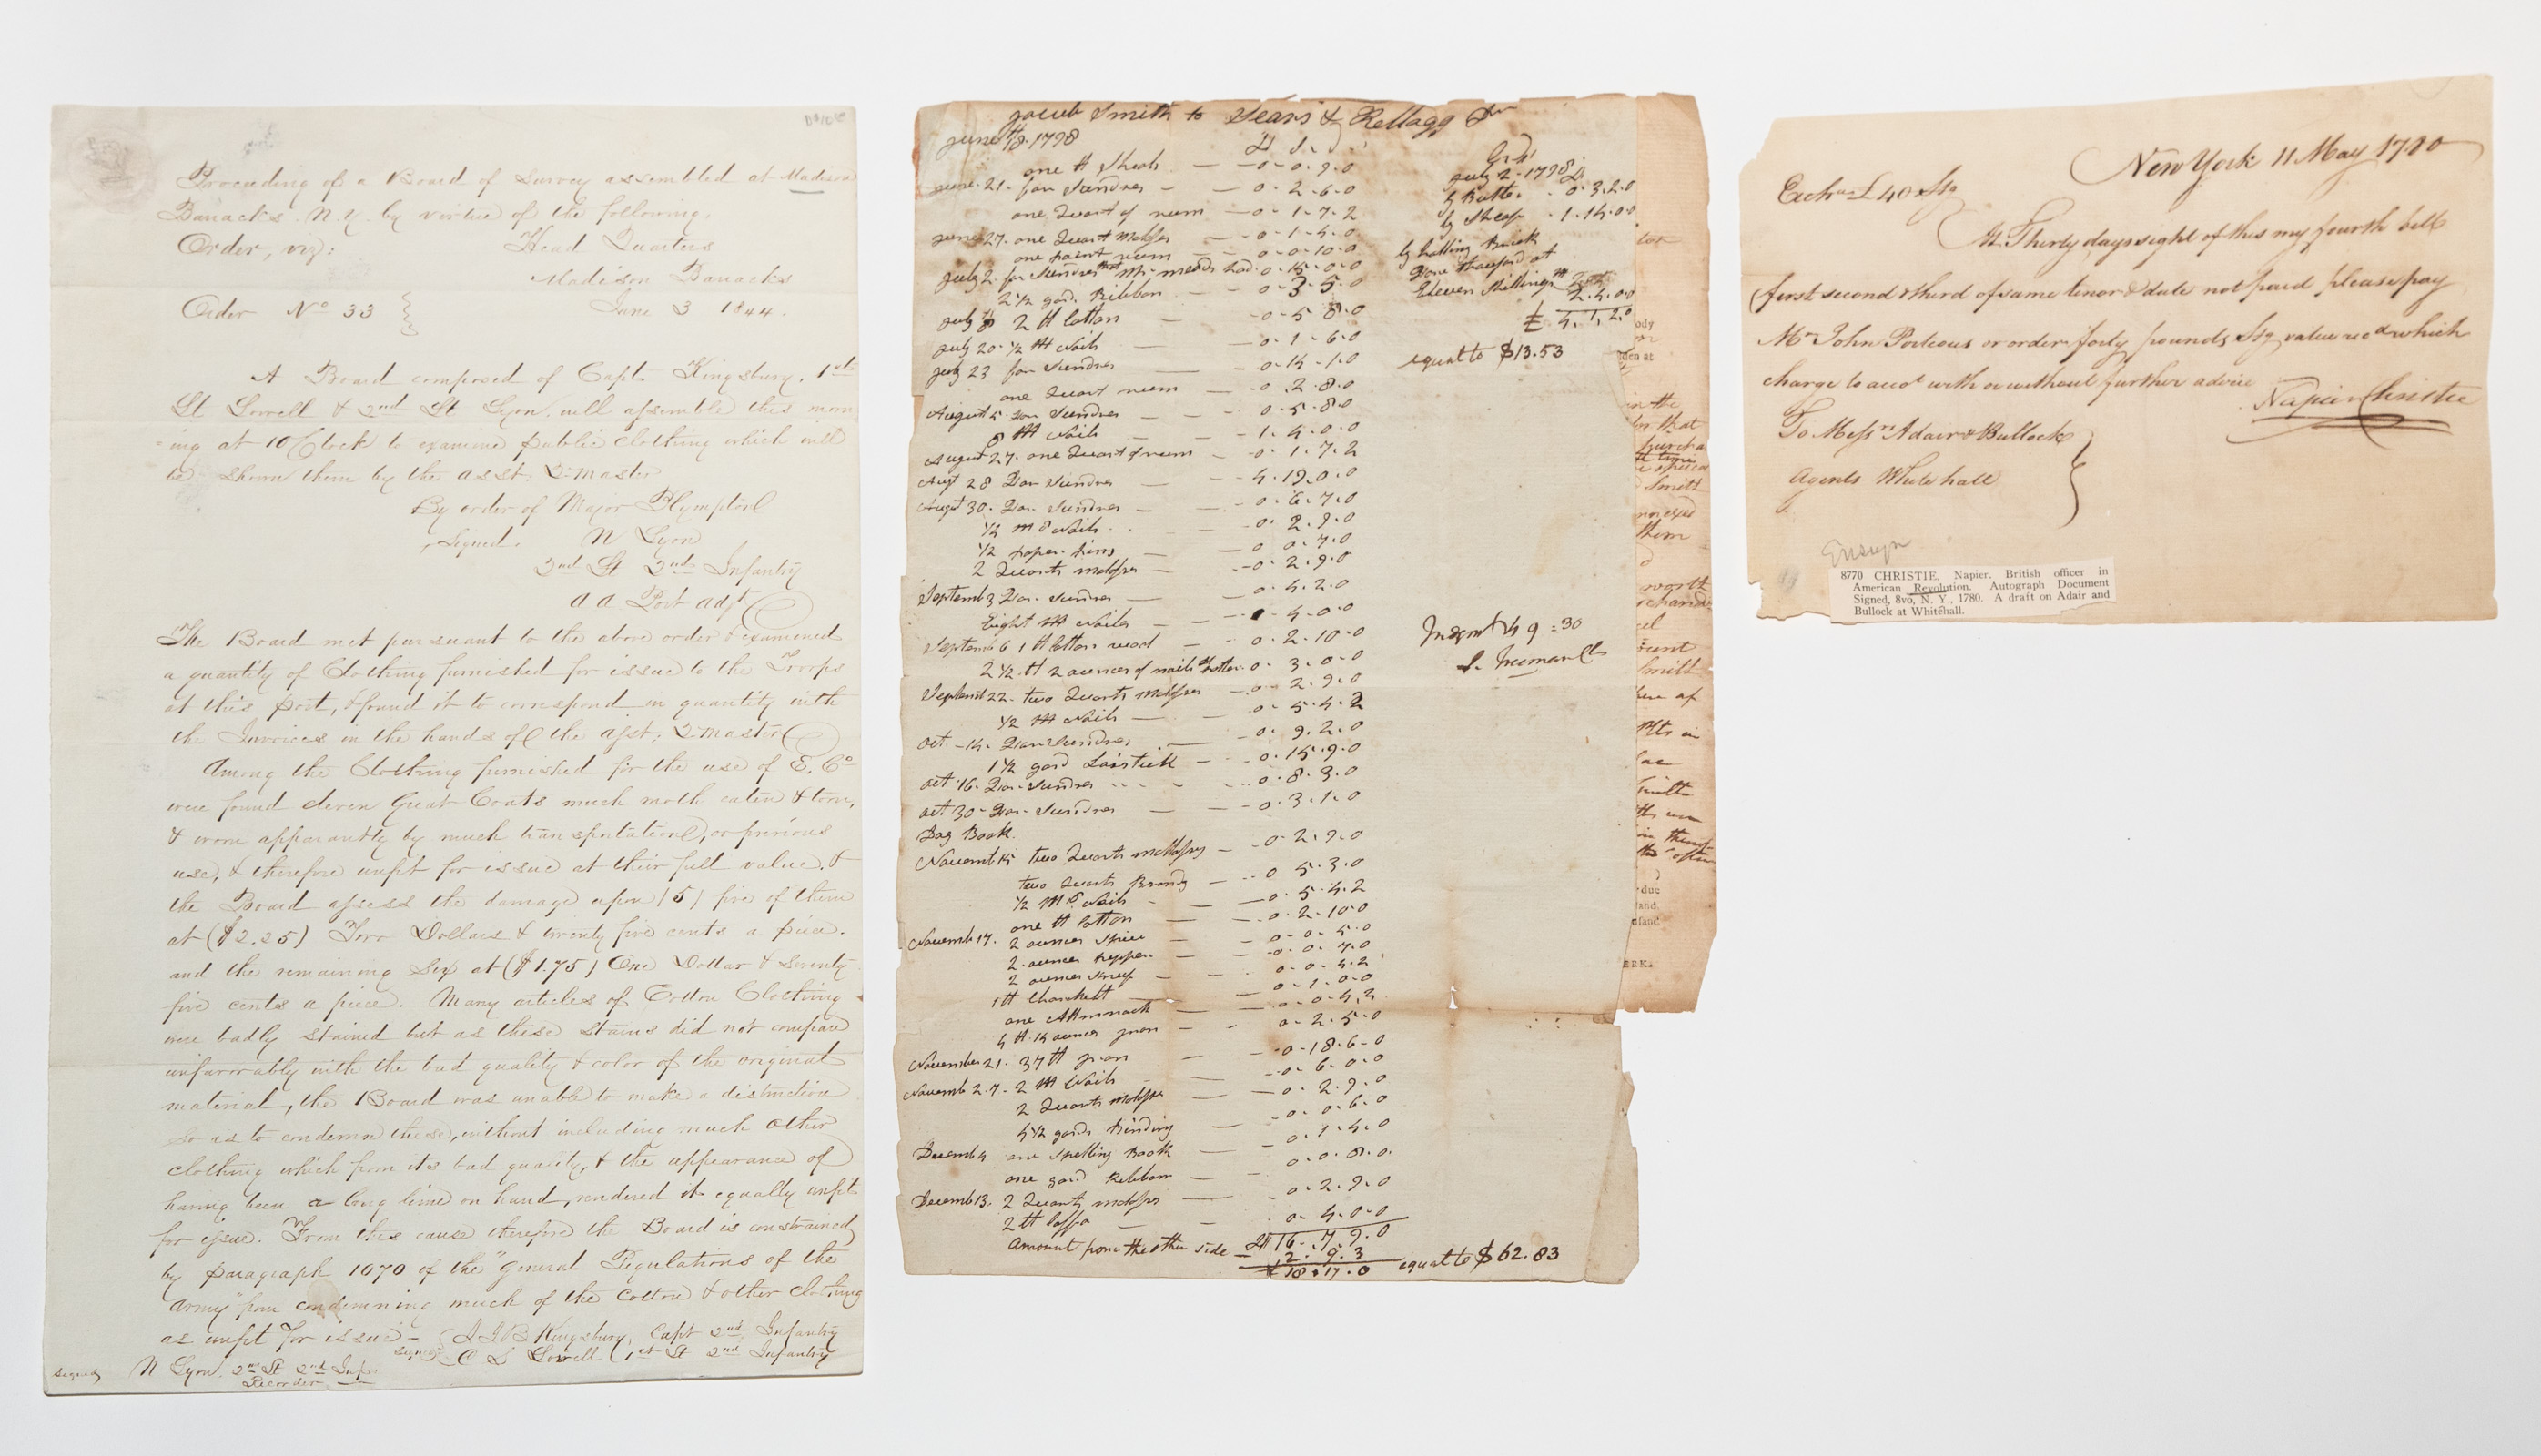 Proceeding of a Board of Survey assembled at Madison
Barracks N.Y. by virtue of the following,
Order, viz:
Head Quarters
Madison Barracks
Order No 33
June 3 1844.
A Board composed of Capt. Kingsbury, 1st
Lt Lovell & 2nd Lt Lyon, will assemble this morn
-ing at 10 O'Clock to examine public clothing which will
be shown them by the asst: Qr master
By order of Major Plympton
Signed. N Lyon
2nd Lt 2nd Infantry
a a Post adjt
The Board met pursuant to the above order & examined
a quantity of Clothing furnished for issue to the Troops
at this post, & found it to correspond in quantity with
the Invoices in the hands of the asst: Qr master
Among the Clothing furnished for the use of E. Co
were found eleven Great Coats much moth eaten & torn,
& worn apparantly by much transportation, or previous
use, & therefore unfit for issue at their full value. &
the Board assess the damage upon (5) five of them
at ($2.25) Two Dollars & twenty five cents a piece.
and the remaining Six at ($1.75) One Dollar & Seventy
five cents a piece. Many articles of Cotton Clothing
were badly stained but as these stains did not compare
unfavorably with the bad quality & color of the original
material, the Board was unable to make a distinction
so as to condemn these, without including much other
clothing which from its bad quality, & the appearance of
having been a long time on hand, rendered it equally unfit
for issue. From this cause therefore the Board is constrained
by paragraph 1070 of the "General Regulations of the
Army" from condemning much of the Cotton & other clothing
as unfit for issue -
J J B Kingsbury, Capt 2nd Infantry
signed C S Lovell 1st Lt 2nd Infantry
signed N Lyon. 2nd Lt 2nd Inf.
Recorder
Jacob Smith to Sears & Kellagg Dr
June 18. 1798
one tt Sheols 0 - 0 . 9 . 0
June . 21 . for Sundres 0 . 2 . 6 . 0
one Quart of rum 0 - 1 . 7 . 2
June 27. one Quart Molsses 0 - 1 - 4 . 0
one paint rum 0 - 0 - 10 . 0
July 2. for Sundres that Mr. meads had 0 . 15 - 0 . 0
2 1/2 yard. Ribbon 0 - 3 - 5 . 0
July 2 tt Cotton 0 - 5 8 . 0
July 20 . 1/2 M Nails 0 . 1 - 6 . 0
July 23 for Sundres 0 . 14 - 1 . 0
one Quart rum 0 . 2 . 8 . 0
August 5. Dor Sundres 0 . 5 . 8 . 0
8 M Nails 1 . 4 . 0 . 0
August 27. one Quart of rum 0 . 1 . 7 . 2
Augt 28 Dor Sundres 4 . 19 . 0 . 0
August 30. Dor. Sundres 0 . 6 . 7 . 0
1/2 m 8 Nails 0 . 2 . 9 . 0
1/2 paper pins 0 0 . 7 . 0
2 Quarts molsses 0 . 2 . 9 . 0
Septemb 3 Dor. Sundres 0 . 4 . 2 . 0
Eight M Nails 4 - 0 . 0
Septemb 6 1 tt Cotton wool 0 . 2 . 10 . 0
2 1/2 tt 2 ounces of nails 0 . 3 . 0 . 0
Septemb 22. two Quarts molsses 0 - 2 . 9 . 0
1/2 M Nails 0 - 5 . 4 . 2
Oct. 14. Dor Sundres 0 . 9 . 2 . 0
1 1/2 yard Lasstick 0 . 15 . 9 . 0
oct 16. Dor Sundres 0 . 8 . 3 . 0
oct 30 - Dor. Sundres 0 . 3 . 1 . 0
Day Book.
Novemb 15 two Quarts molasses 0 . 2 . 9 . 0
two Quarts Brandy 0 5 . 3 . 0
1/2 M 8 Nails 0 . 5 . 4 . 2
one tt Cotton 0 . 2 . 10 . 0
Novemb 17. 2 ounces spice 0 - 0 . 5 . 0
2 ounces pepper 0 . 0 . 7 . 0
2 ounces snuf 0 . 0 . 4 . 2
1 tt 0 - 1 . 0 . 0
one Allmnack 0 . 0 - 4 . 2
4 tt 14 ounces iron 0 . 2 . 5 . 0
November 21. 37 tt iron 0 . 18 . 6 . 0
Novemb 27. 2 M Nails 0 . 6 . 0 . 0
2 Quarts molsses 0 . 2 . 9 . 0
4 1/2 yards Binding 0 . 0 . 6 . 0
Decemb 4 one Spelling Book 0 . 1 . 4 . 0
one yard Ribbon 0 . 0 . 8 . 0
Decemb 13. 2 Quarts molsses 0 . 2 . 9 . 0
2 tt Coffa 0 . 4 . 0 . 0
16 . 7 . 9 . 0
Amount from the other side 2 . 9 . 3
£ 18 . 17 . 0 equal to $62.83
Cr
July 2 - 1798
by Butter . 0 . 3 . 2 . 0
by Sheap . 1 . 14 . 0 . 0
by halling Brick
from Stamford at
Eleven Shillings
2 . 4 . 0 . 0
£ 4 . 1 . 2 . 0
equal to $13.53
Judgmt 49 = 30
S. Truman Clk
ody
den at
in the
that
Smith
them
worth
ount
Smith
due
land.
ERK.
New York 11 May 1780
Exche £40 Stg
At Thirty days sight of this my fourth bill
(first second & third of same tenor & date not paid please pay
Mr John Porteous or order forty pounds Stg value recd which
charge to acct with or without further advice
Napier Christie
To Messrs Adair & Bullock
Agents Whitehall
Ensign
8770 CHRISTIE, Napier. British officer in
American Revolution. Autograph Document
Signed, 8vo, N. Y., 1780. A draft on Adair and
Bullock at Whitehall.